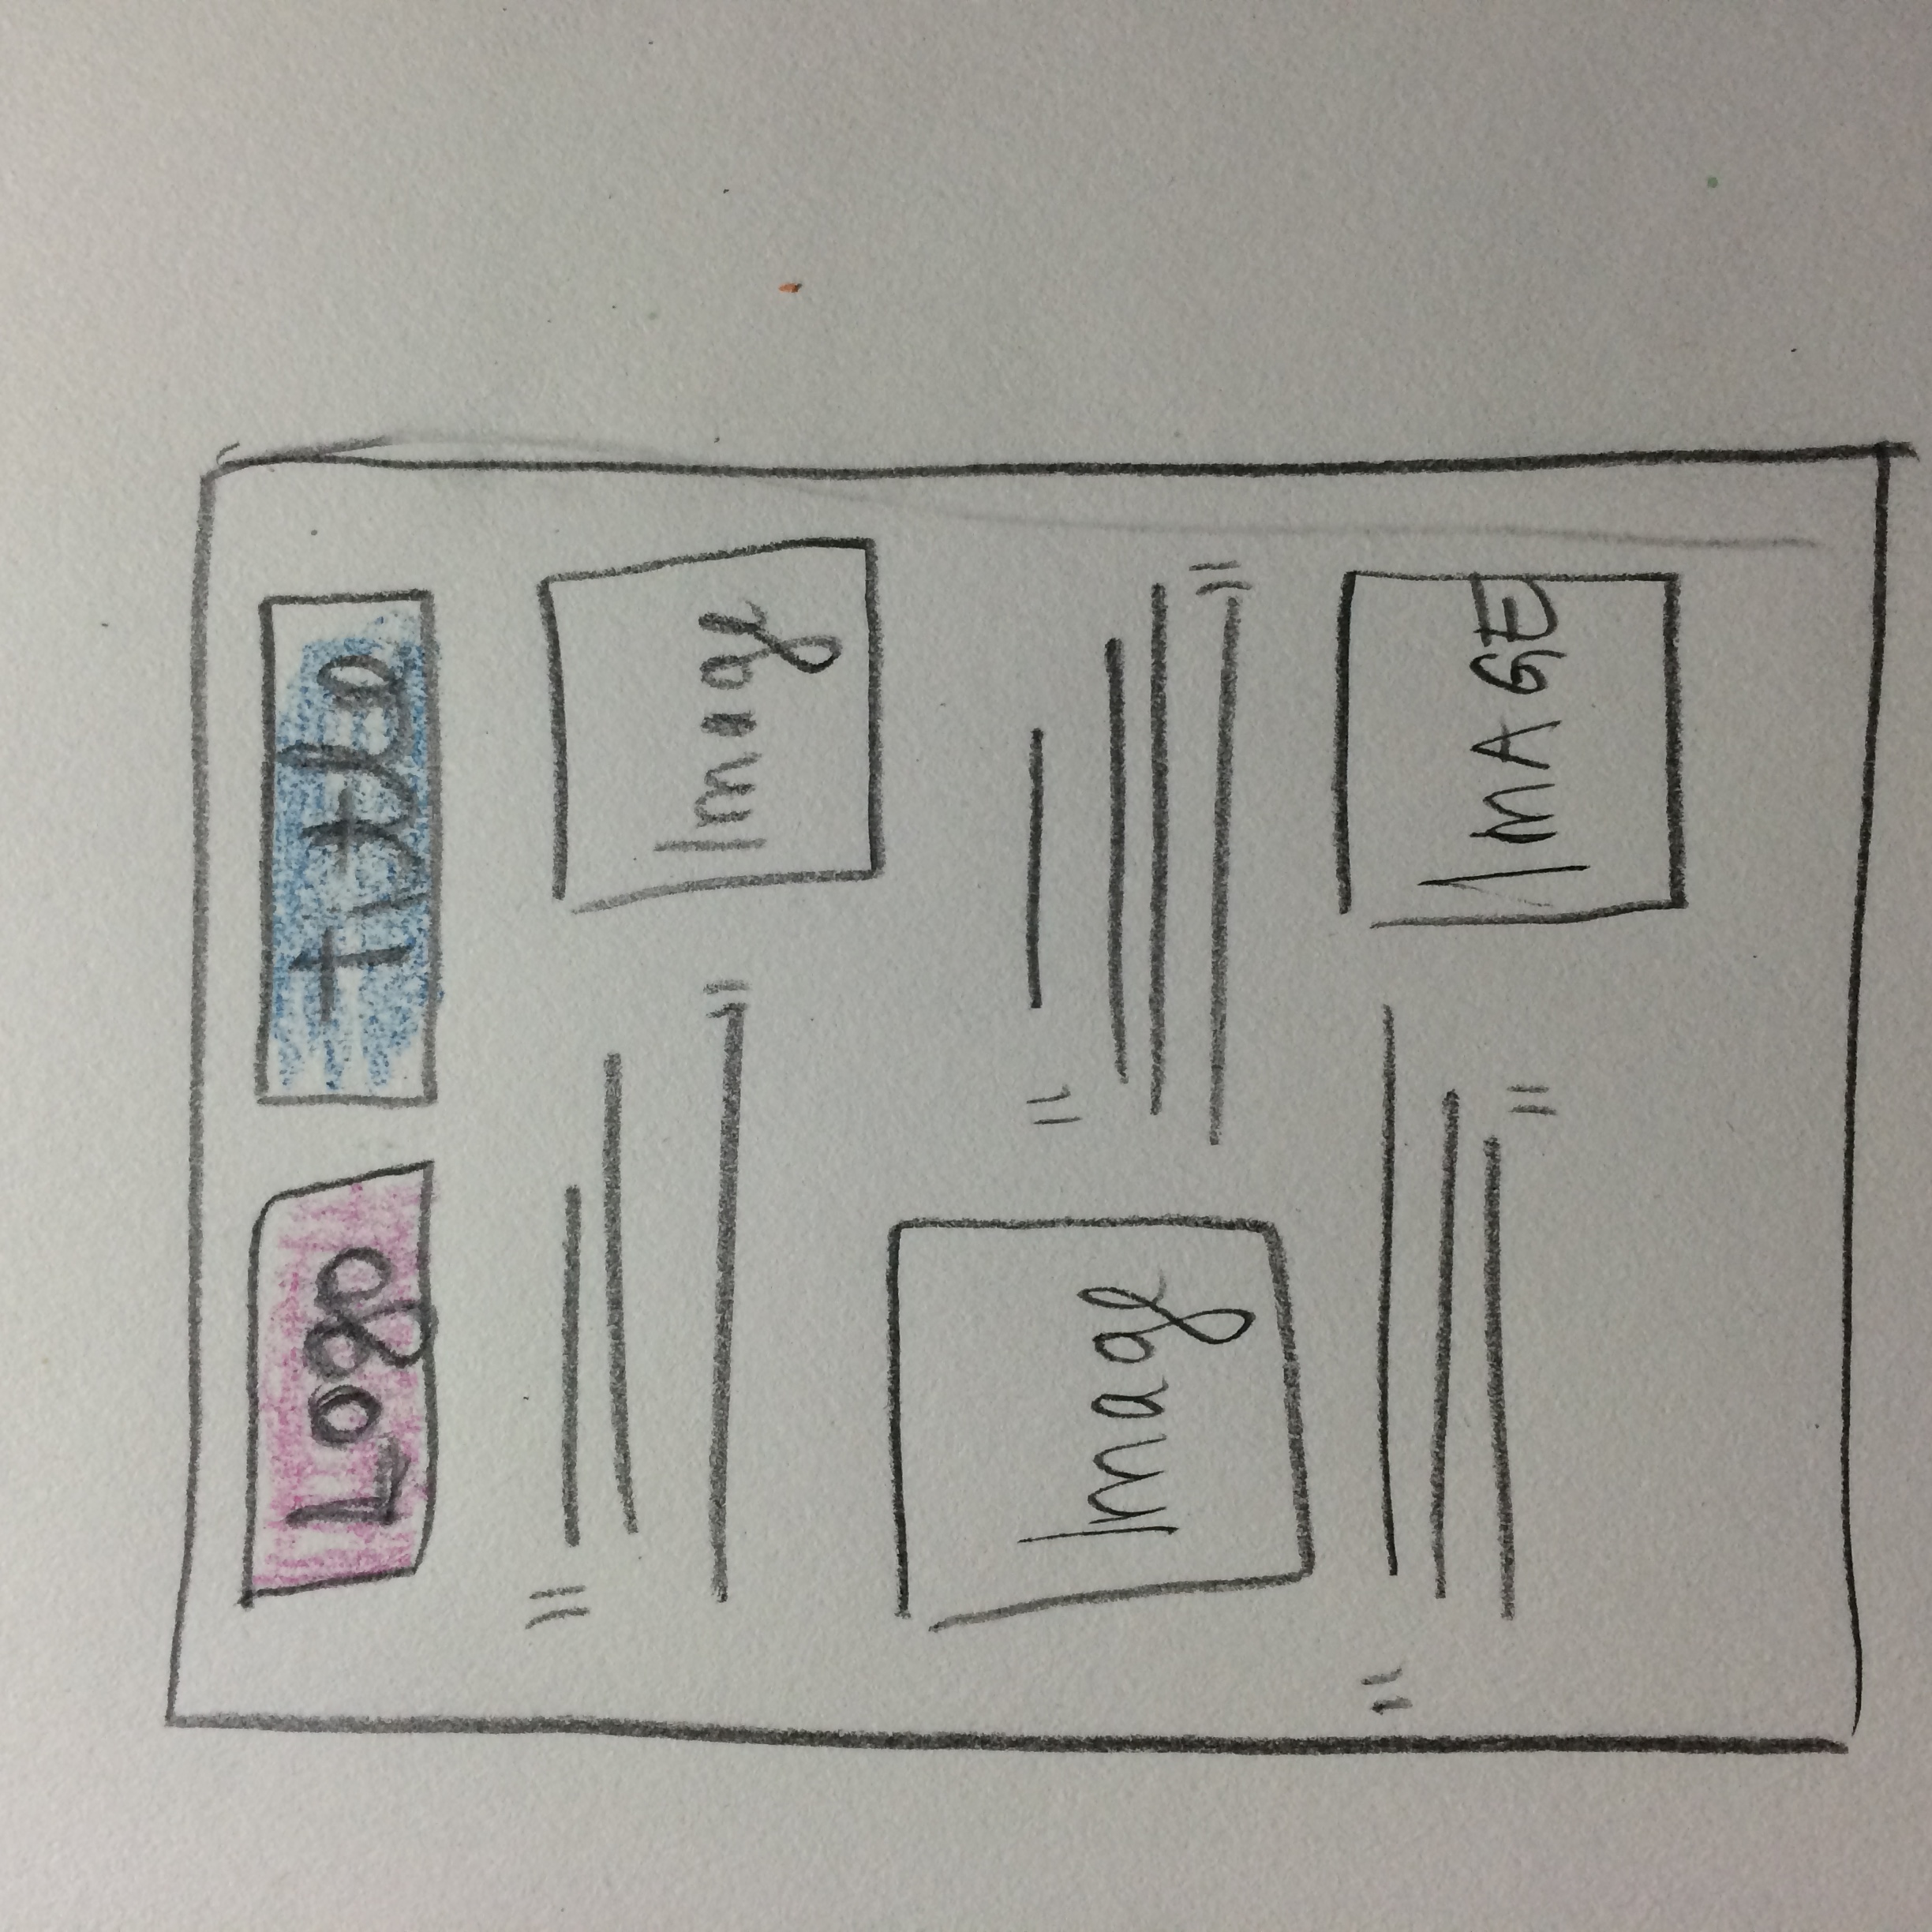 Logo
Tittle
"
"
Image
Image
"
"
"
"
IMAGE